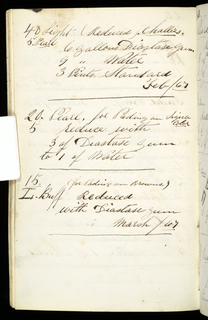 48 Light (Reduced; Challies,
5 Peale 6 Gallons Diastase Gum
9 " Water
3 Pints Standard
Feb/67
26 Peale, for Pading on
5 reduce with
3 of Diastase Gum
to 1 of Water
15 (for Pading on Browns)
L. Buff Reduced
with Diastase Gum
March/67